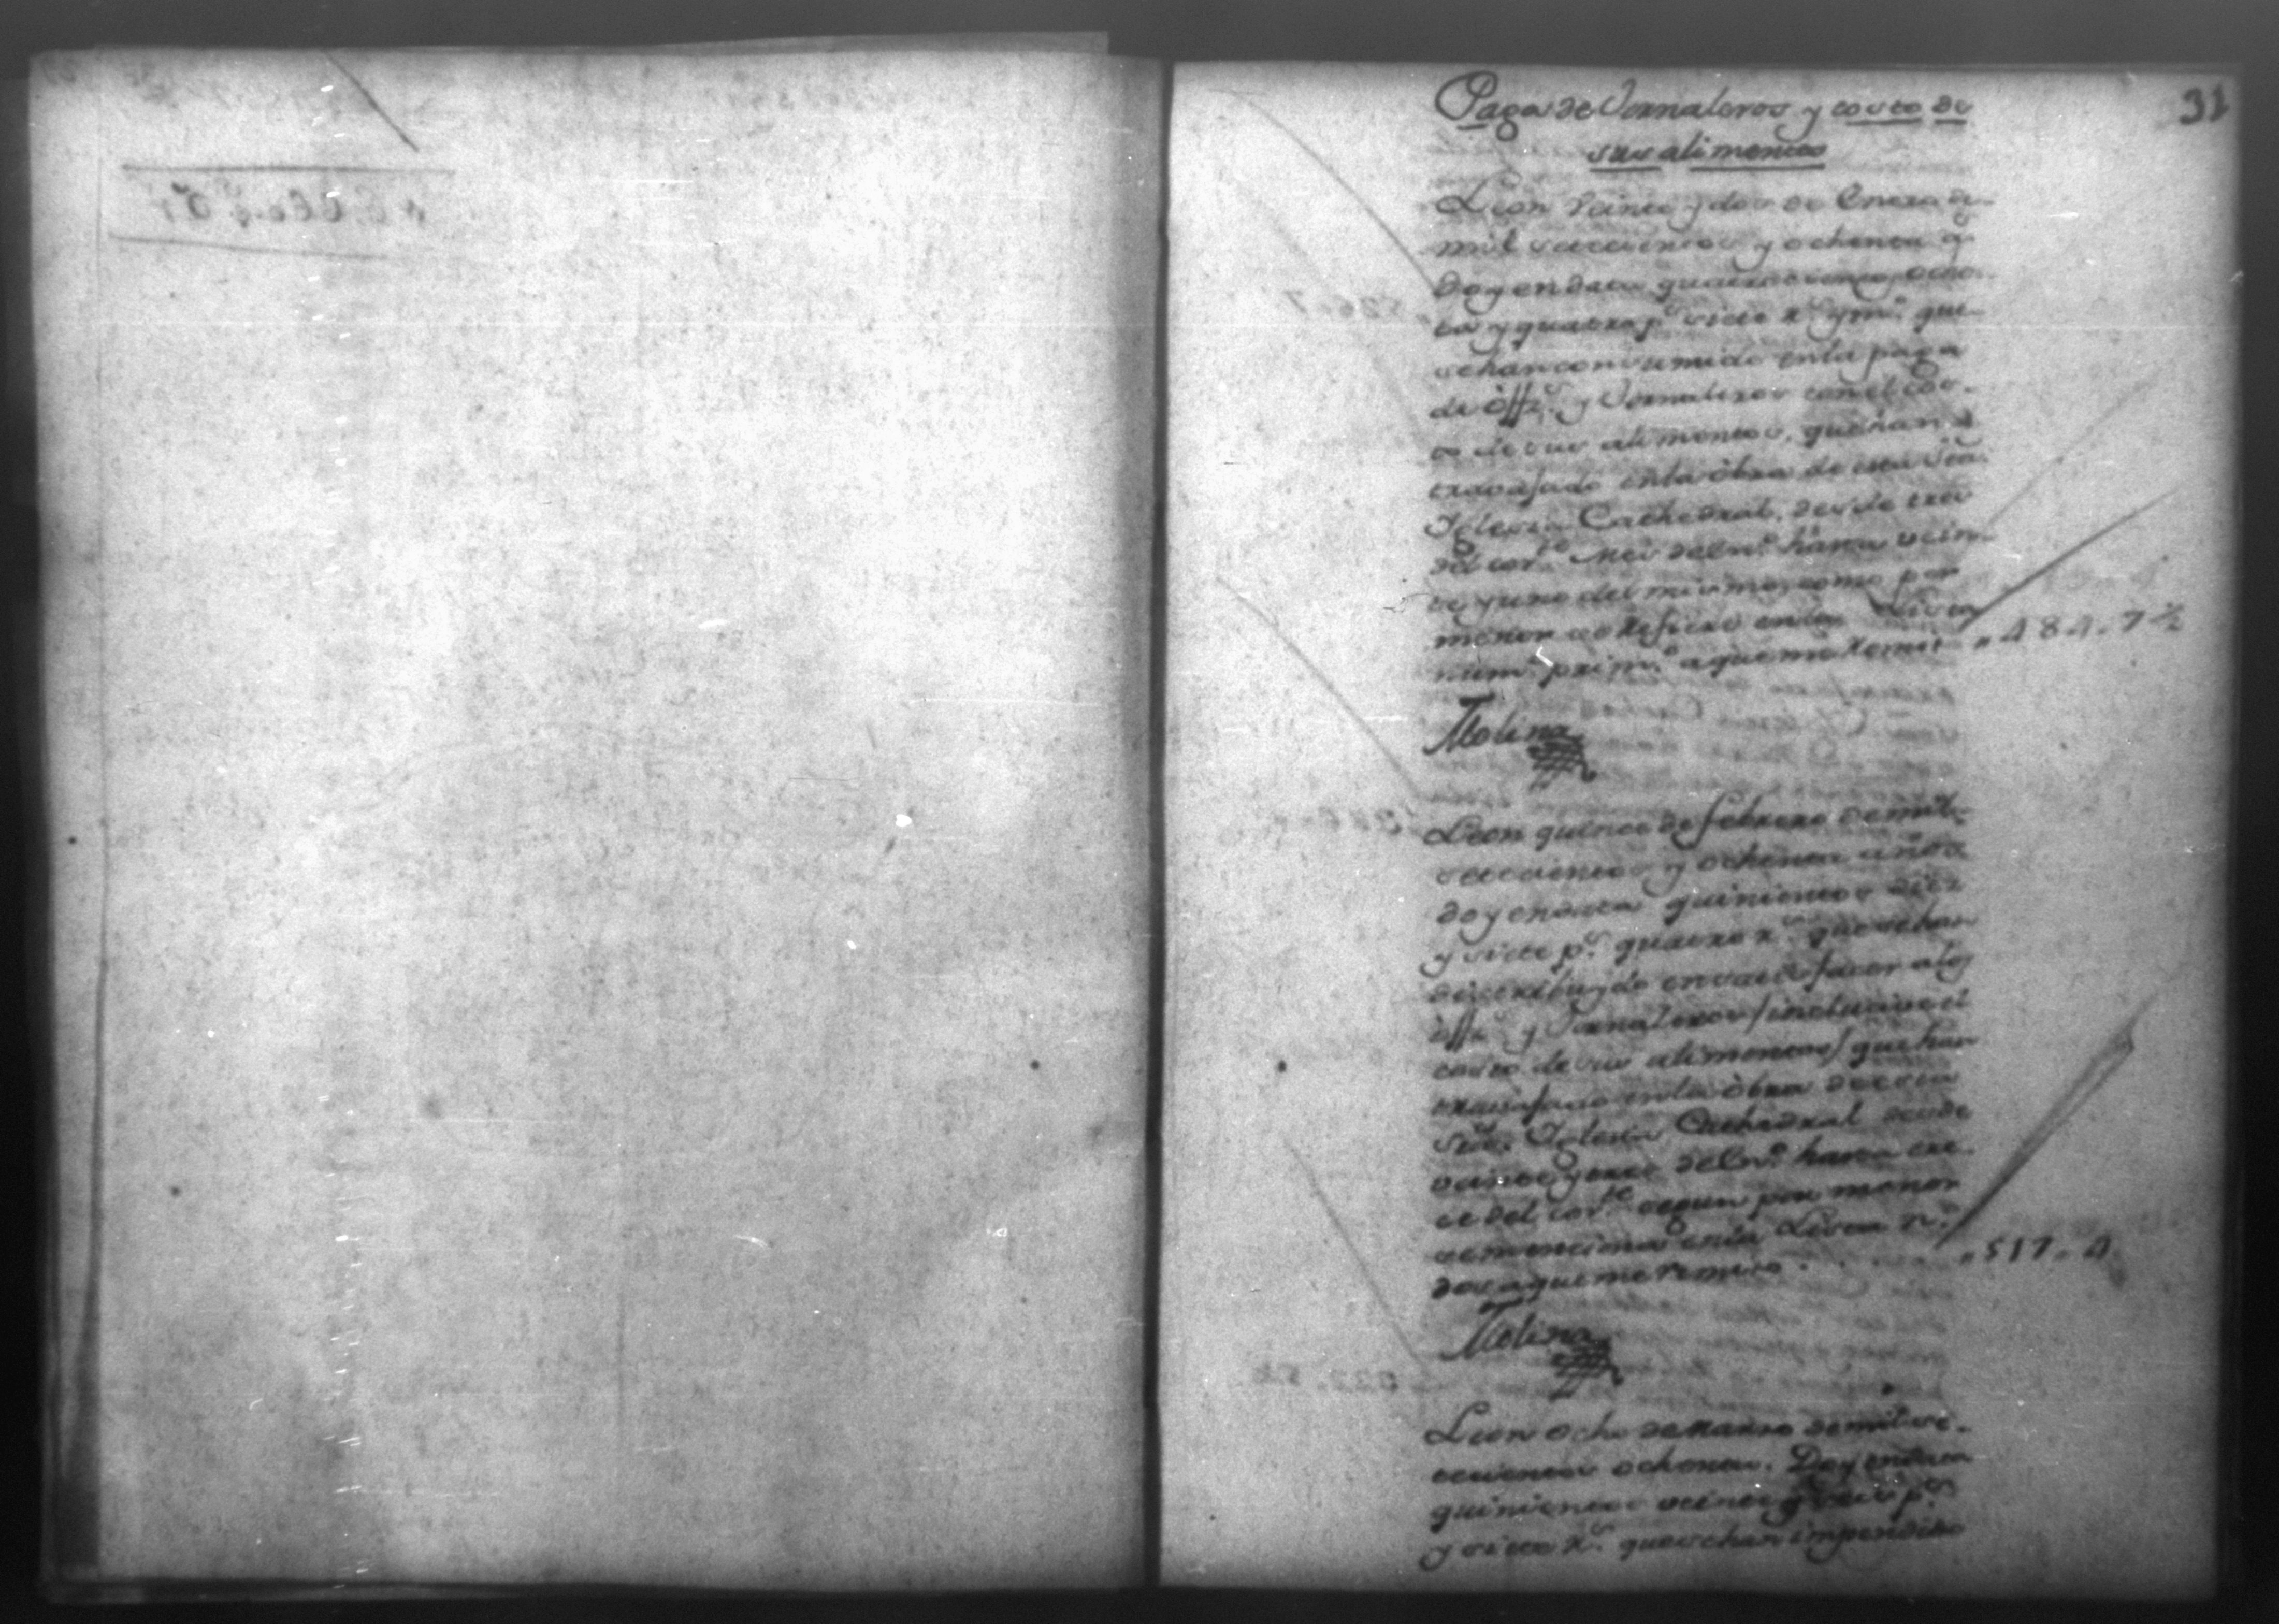 31
Paga de Jornaleros y costo de
sus alimentos
Leon veinte y dos de Enero de
mil setecientos y ochenta a.s
doy en data quatrocientos ochen-
ta y quatro p.s siete r.s y m.o que
se han consumido en la paga
de òff.s y Jornaleros con el cos-
to de sus alimentos, que han
travajado en la òbra de esta Sta.
Iglesia Cathedral, desde tres
del cor.te Mes de En.o hasta vein-
te y uno del mismo, como por
menor se refiere en la Lista
num.o prim.o a que me remito „484.7½
Molina
Leon quince de febrero de mil
setecientos y ochenta años
doy en data quinientos diez
y siete p.s quatro r.s que se han
distribuydo en satisfacer a los
òff.s y Jornaleros/inclusive el
costo de sus alimentos/que han
travajado en la òbra de esta
Sta. Iglesia Cathedral desde
veinte y tres de En.o hasta tre-
ce del cor.te segun por menor
se menciona en la Lista n.o
dos a que me remito . . . . . „517.4
Molina
Leon ocho de Marzo de mil sete-
cientos ochenta. Doy en data
quinientos veinte y seis p.s
y siete r.s que se han impendido